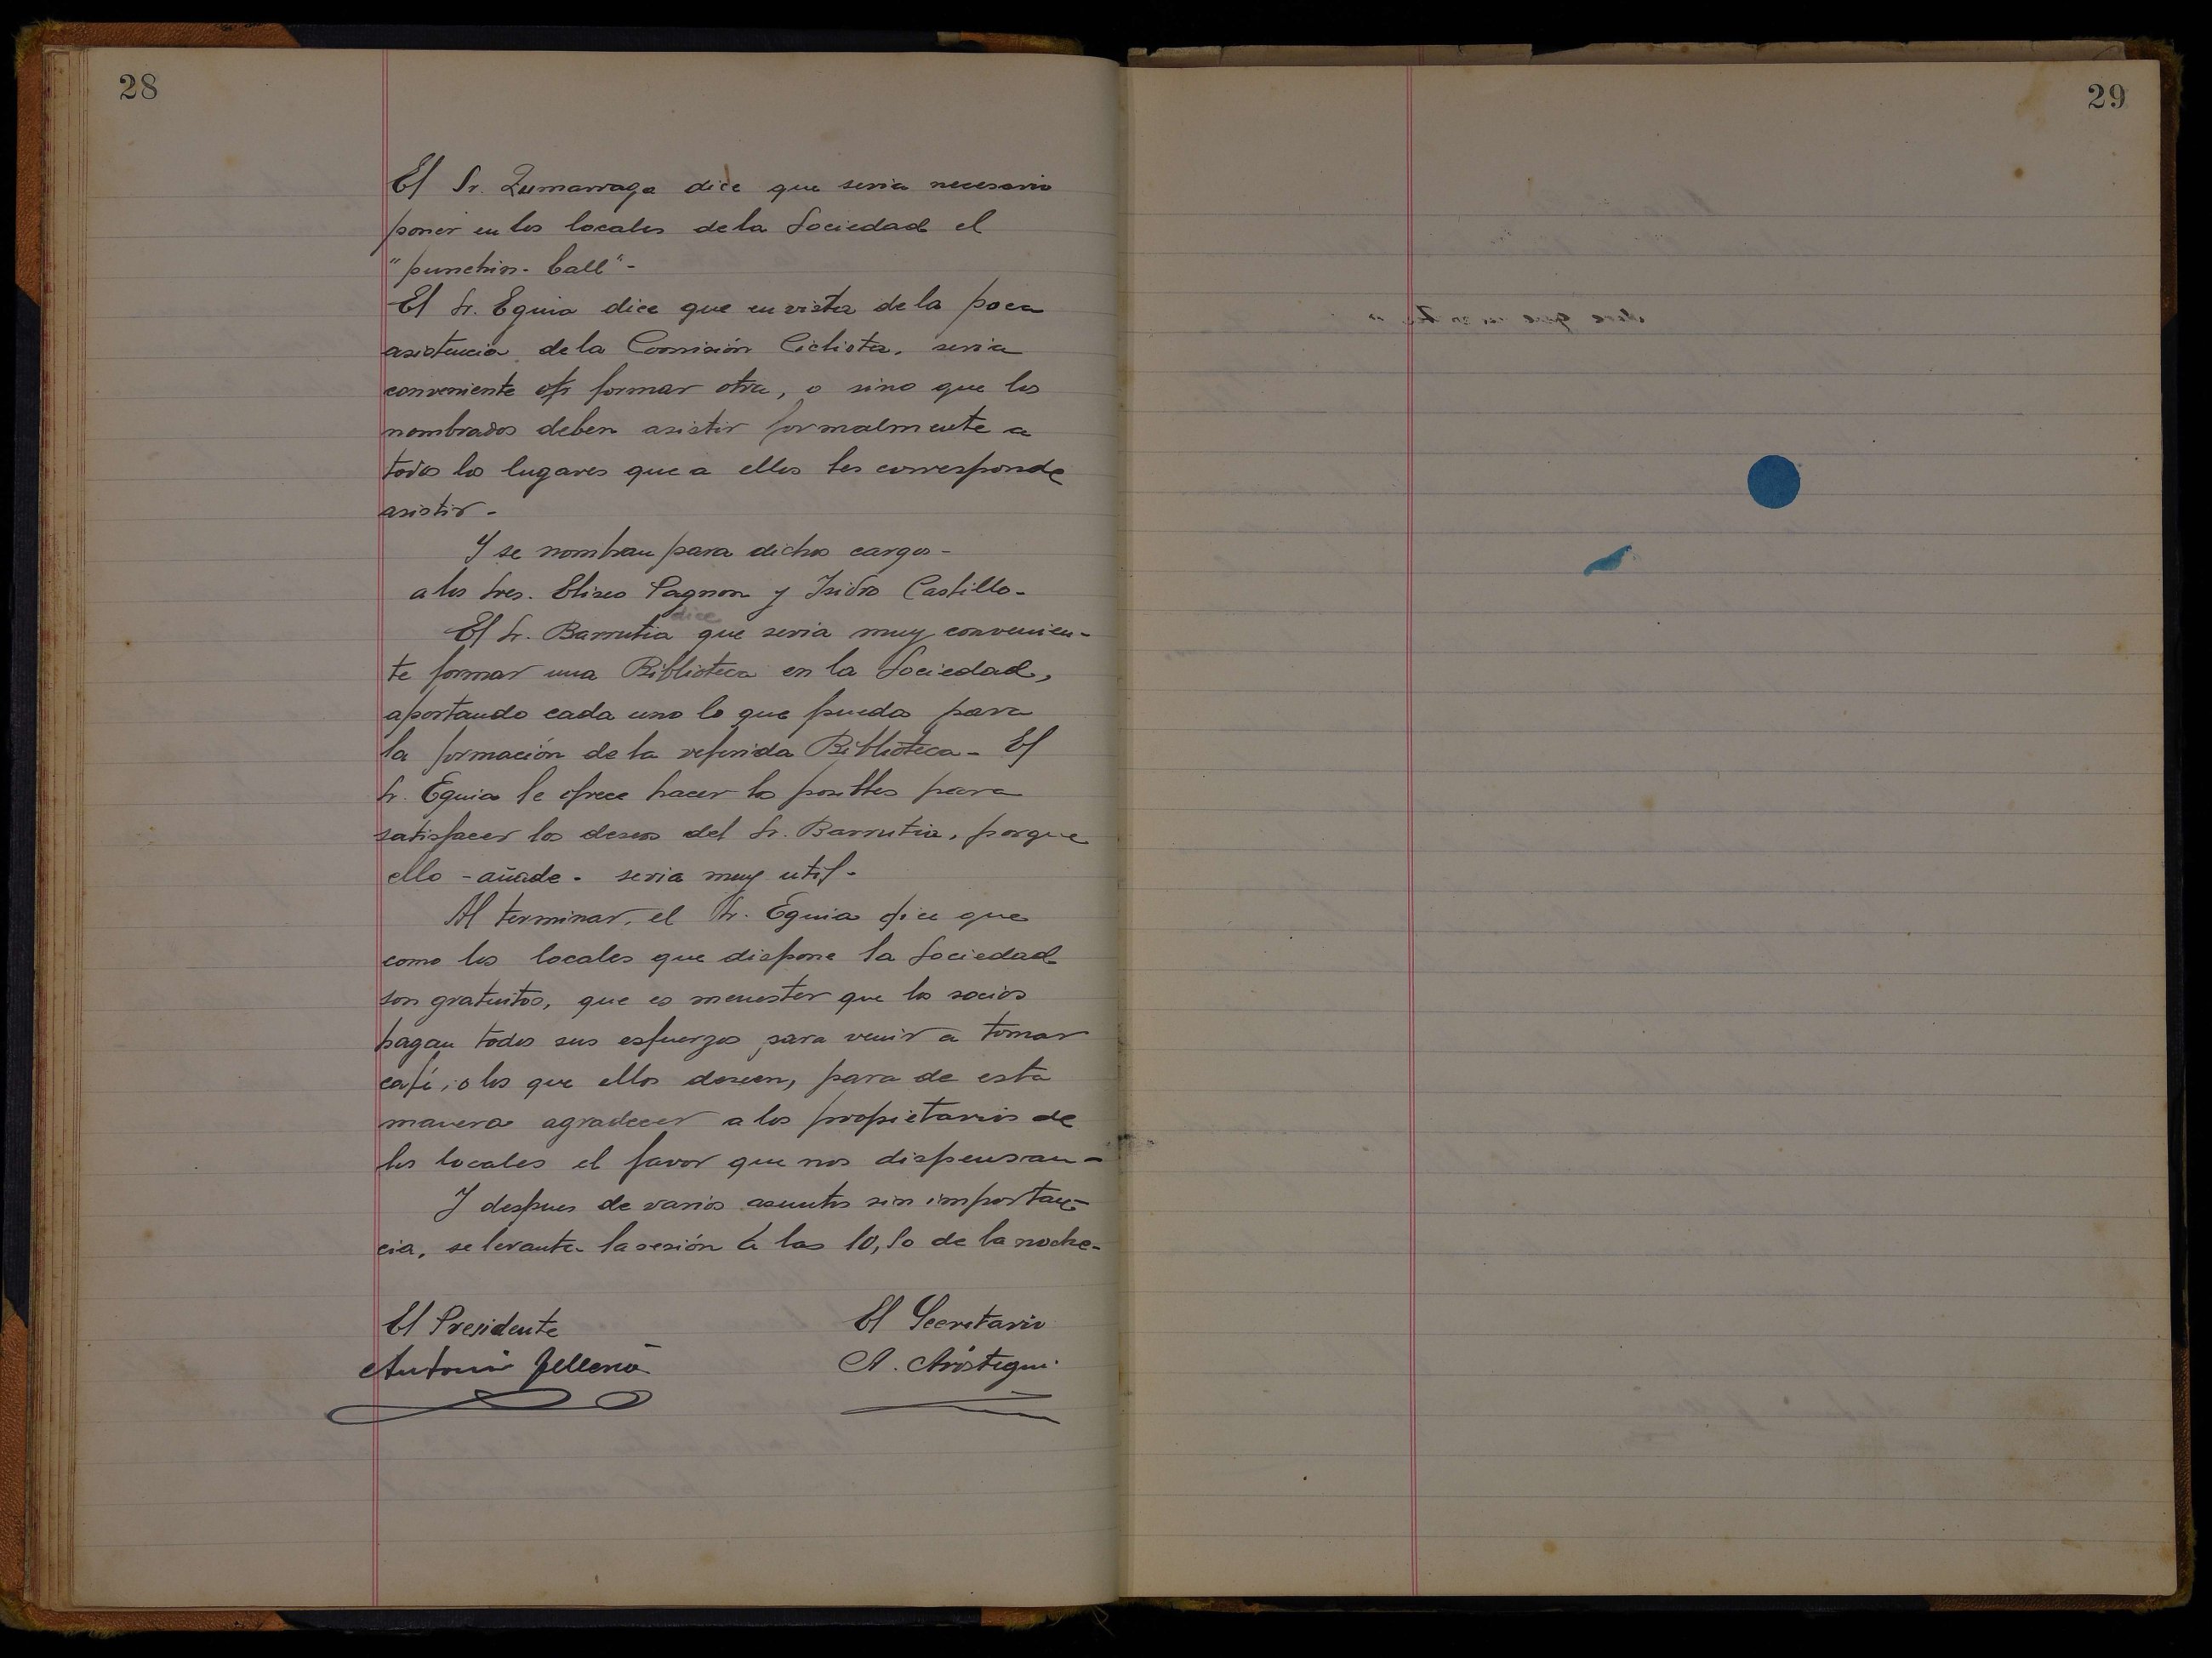 28
El Sr. Zumarraga dice que seria necesario
poner en los locales de la Sociedad el
"punchin-ball"-
El Sr. Eguia dice que en vista de la poca
asistencia de la Comisión Ciclista, seria
conveniente formar otra, o sino que los
nombrados deben asistir formalmente a
todos los lugares que a ellos les corresponde
asistir-
Y se nombran para dichos cargos-
a los Sres. Eliseo Pagnon y Isidro Castillo-
dice
El Sr. Barrutia que seria muy convenien-
te formar una Biblioteca en la Sociedad,
aportando cada uno lo que pueda para
la formación de la referida Biblioteca- El
Sr. Eguia le ofrece hacer los posibles para
satisfacer los deseos del Sr. Barrutia, porque
ello -añade- seria muy util-
Al terminar, el Sr. Eguia dice que
como los locales que dispone la Sociedad
son gratuitos, que es menester que los socios
hagan todos sus esfuerzos para venir a tomar
café, o los que ellos deseen, para de esta
manera agradecer a los propietarios de
los locales el favor que nos dispensan-
Y despues de varios asuntos sin importan-
cia, se levanta la sesión a las 10,10 de la noche-
El Presidente
El Secretario
Antonio
A. Aróstegui
29